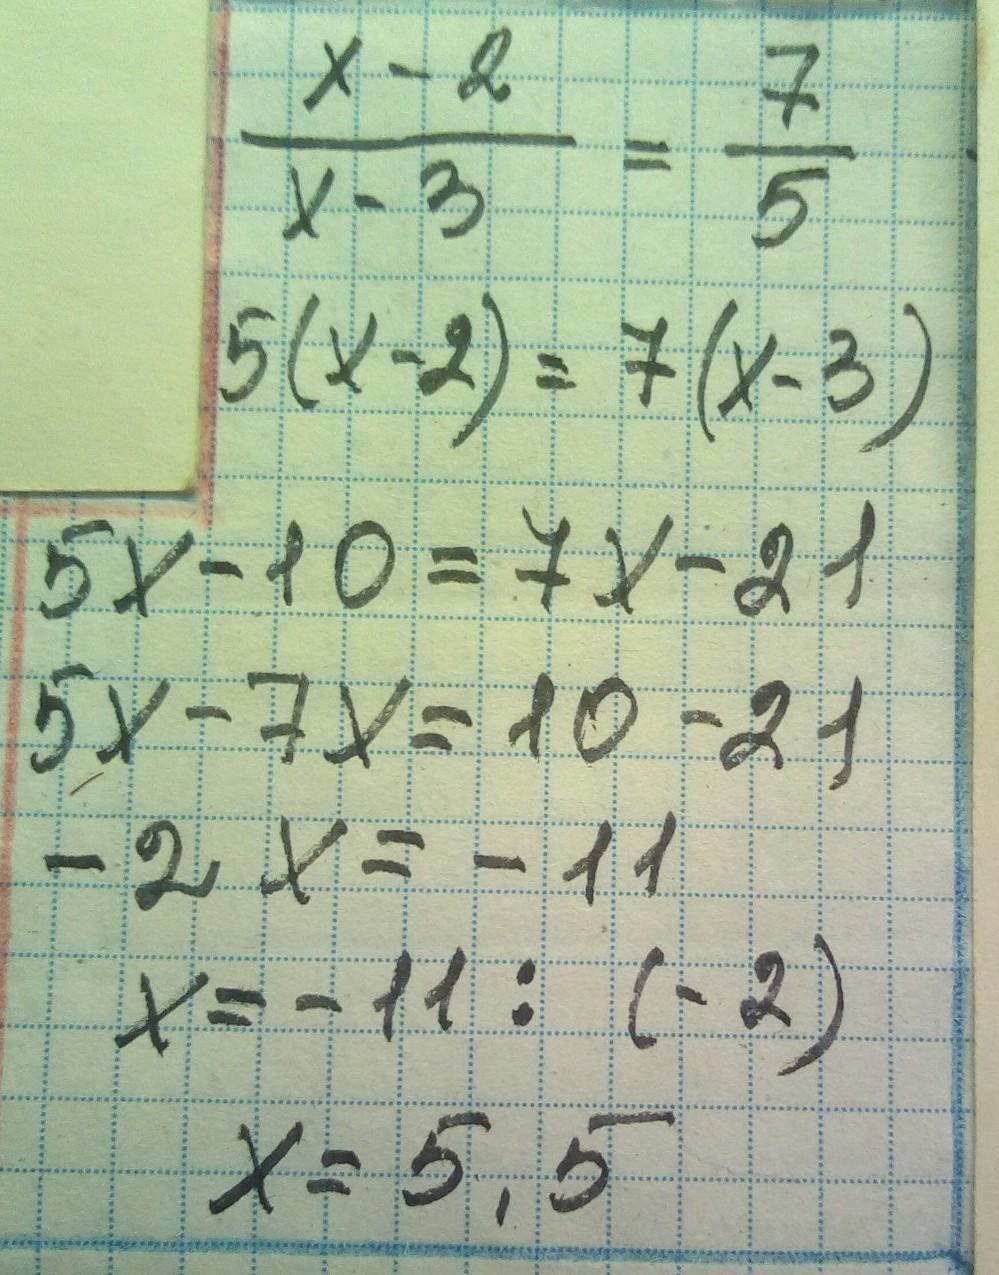 x - 2 / x - 3 = 7 / 5
5(x-2) = 7(x-3)
5x-10=7x-21
5x-7x=10-21
-2x=-11
x=-11:(-2)
x=5,5